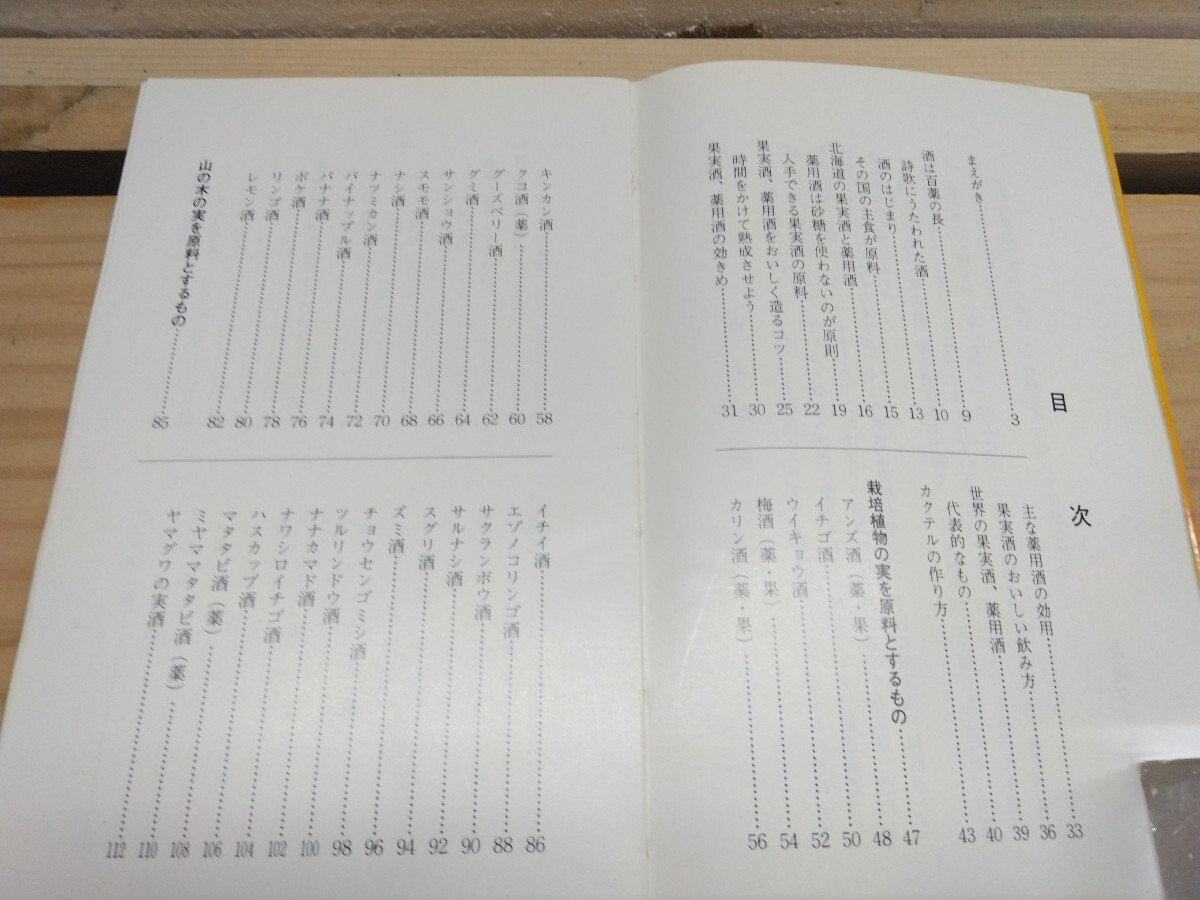 目次
まえがき……3
酒は百薬の長……9
詩歌にうたわれた酒……10
酒のはじまり……13
その国の主食が原料……15
北海道の果実酒と薬用酒……16
薬用酒は砂糖を使わないのが原則……19
入手できる果実酒の原料……22
果実酒、薬用酒をおいしく造るコツ……25
時間をかけて熟成させよう……30
果実酒、薬用酒の効きめ……31
主な薬用酒の効用……33
果実酒のおいしい飲み方……36
世界の果実酒、薬用酒……39
代表的なもの……40
カクテルの作り方……43
栽培植物の実を原料とするもの……47
アンズ酒(薬・果)……48
イチゴ酒……50
ウイキョウ酒……52
梅酒(薬・果)……54
カリン酒(薬・果)……56
キンカン酒……58
クコ酒(薬)……60
グーズベリー酒……62
グミ酒……64
サンショウ酒……66
スモモ酒……68
ナシ酒……70
ナツミカン酒……72
パイナップル酒……74
バナナ酒……76
ボケ酒……78
リンゴ酒……80
レモン酒……82
山の木の実を原料とするもの……85
イチイ酒……86
エゾノコリンゴ酒……88
サクランボウ酒……90
サルナシ酒……92
スグリ酒……94
ズミ酒……96
チョウセンゴミシ酒……98
ツルリンドウ酒……100
ナナカマド酒……102
ナワシロイチゴ酒……104
ハスカップ酒……106
マタタビ酒(薬)……108
ミヤママタタビ酒(薬)……110
ヤマグワの実酒……112